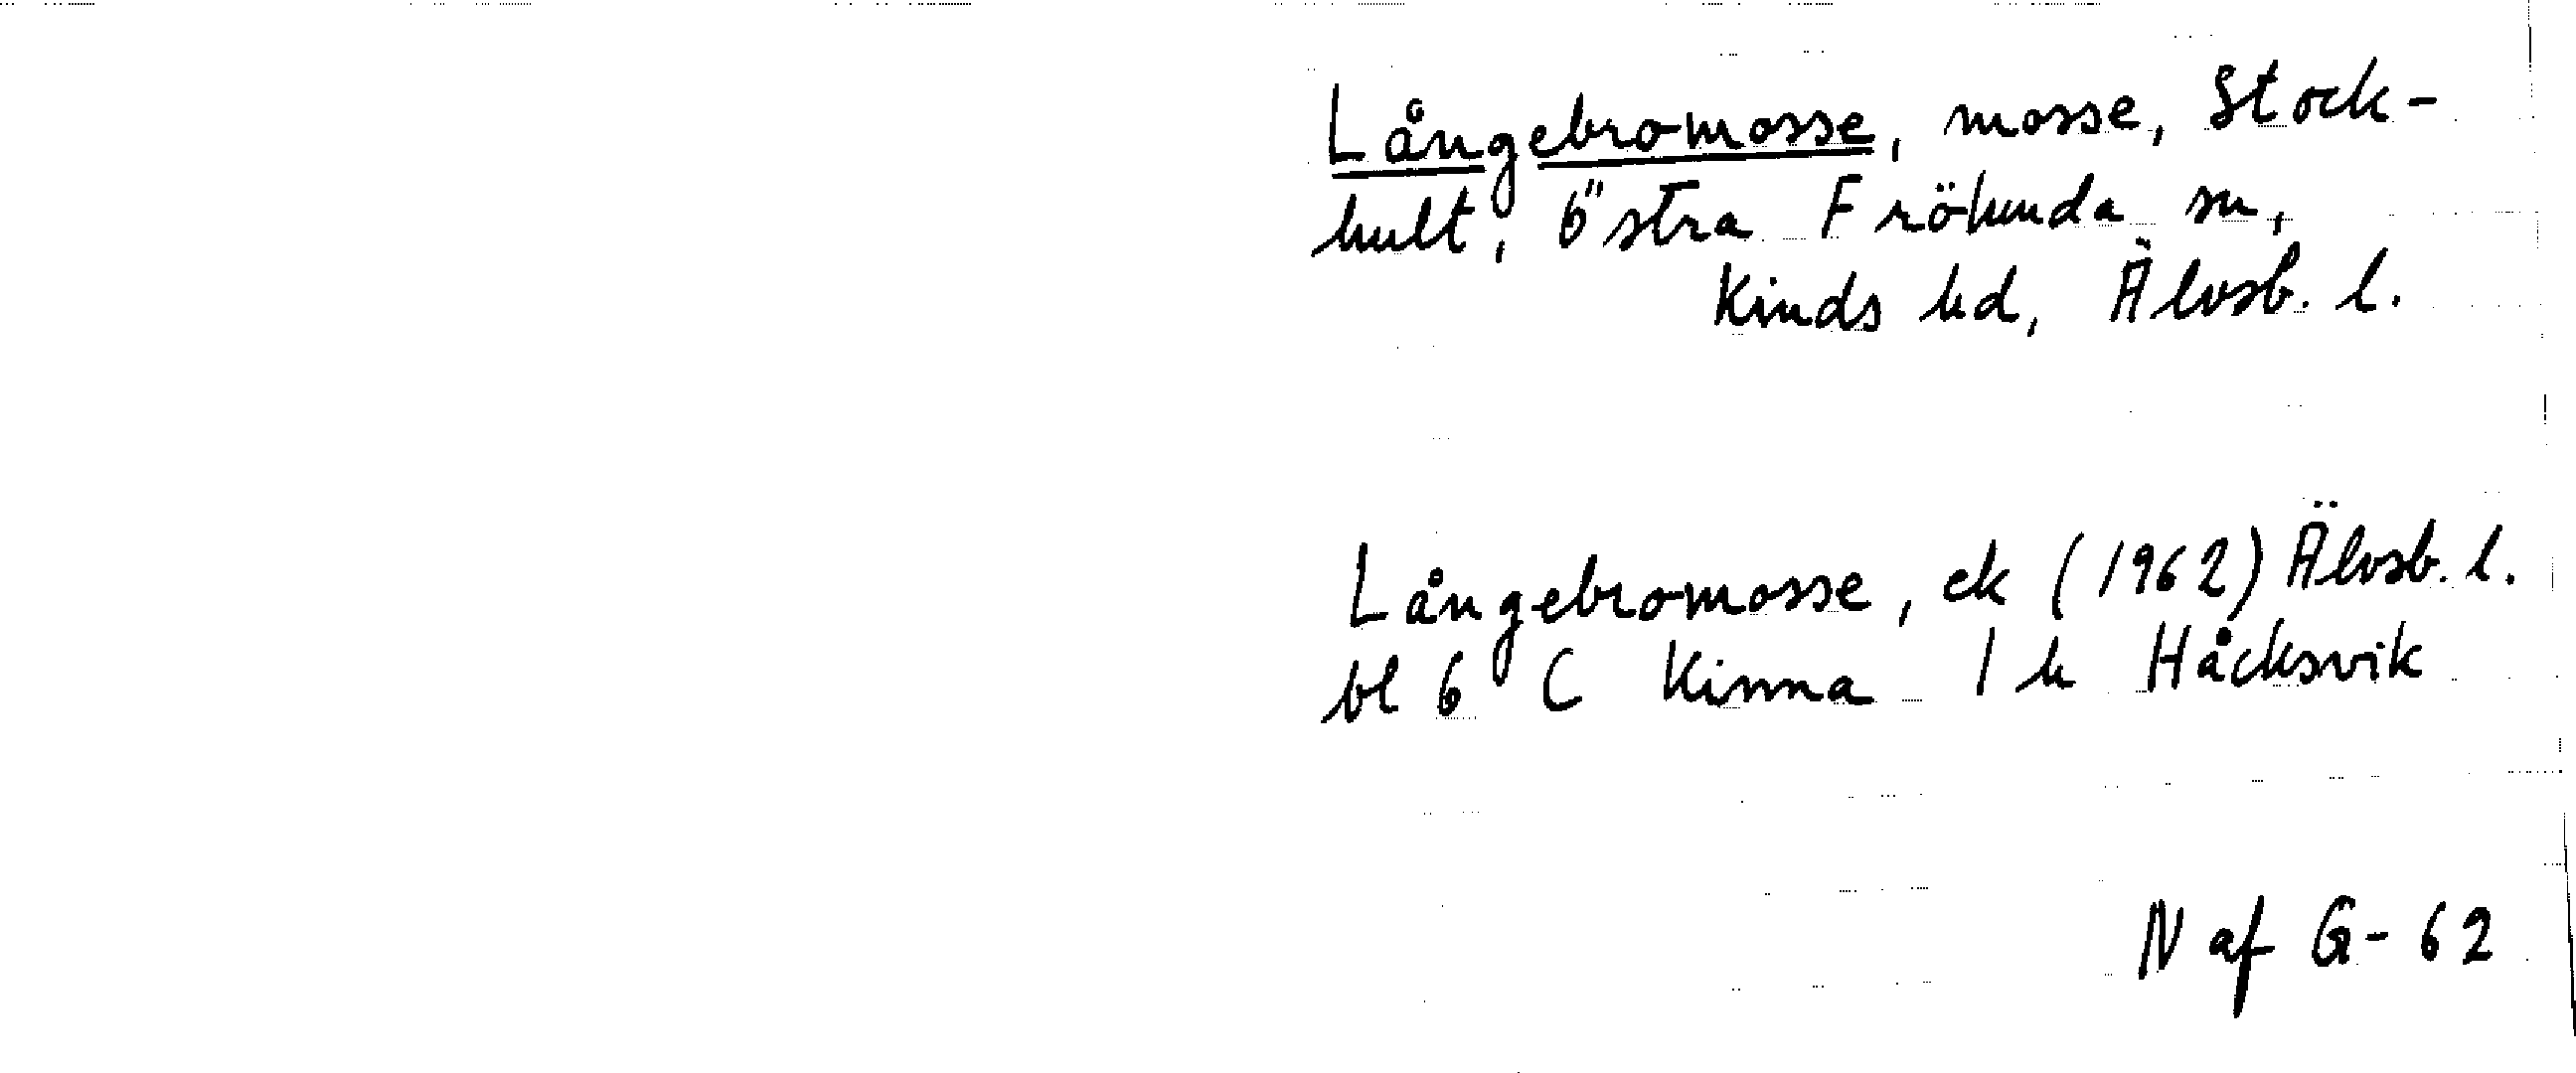 Långebromosse, mosse, Stock-
hult, Östra Frölunda sn,
Kinds hd, Älvsb. l.
Långebromosse, ek (1962) Älvsb. l.
bl 6 C Kinna 1 h Håcksvik
N af G-62